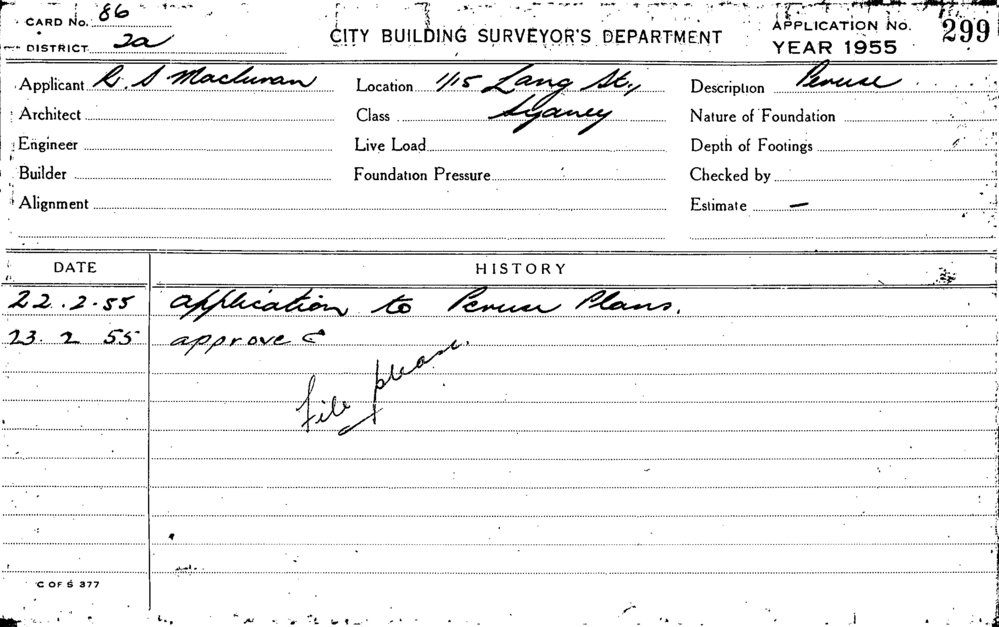 CARD No. 86
DISTRICT 2a
CITY BUILDING SURVEYOR'S DEPARTMENT
APPLICATION No. 299
YEAR 1955
Applicant R. S
Location 1/15 Lang St.,
Description Peruse
Architect
Class Sydney
Nature of Foundation
Engineer
Live Load
Depth of Footings
Builder
Foundation Pressure
Checked by
Alignment
Estimate —
DATE HISTORY
22.2.55 application to Peruse Plans.
23. 2 55 approved
File please.
C OF S 377